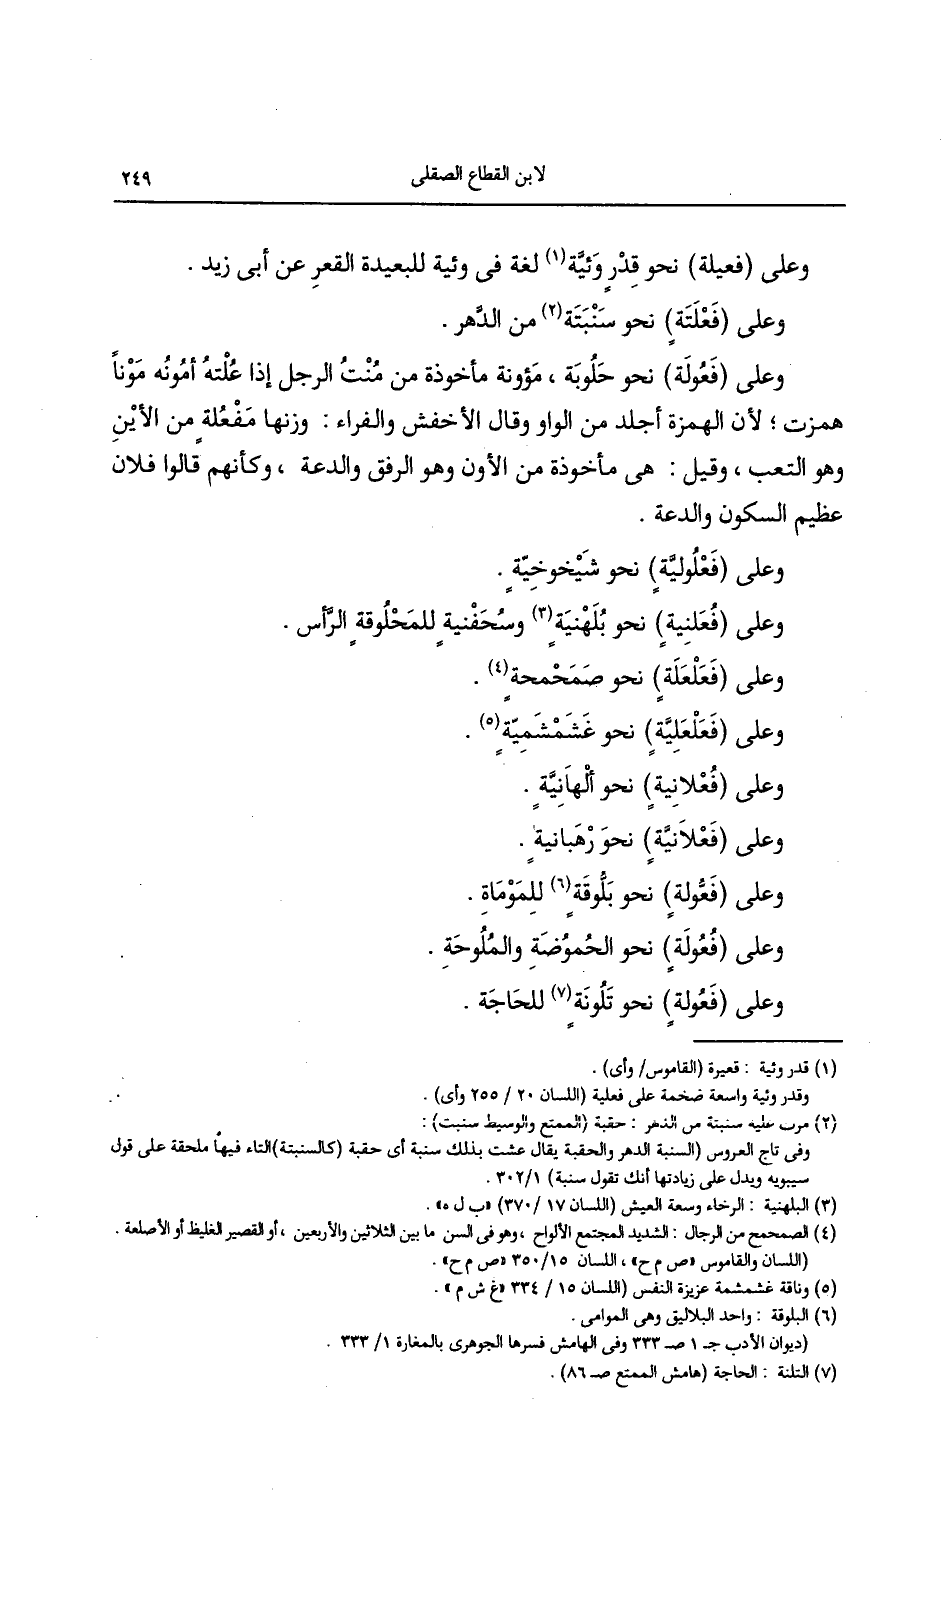 لابن القطاع الصقلى
٢٤٩
وعلى (فعيلة) نحو قِدْرٍ وَئيَّة(١) لغة فى وئية للبعيدة القعرِ عن أبى زيد .
وعلى (فَعْلَتَةٍ) نحو سَنْبَتَة(٢) من الدَّهر .
وعلى (فَعُولَة) نحو حَلُوبَة ، مَؤونة مأخوذة من مُنْتُ الرجل إذا عُلْتهُ أمُونُه مَوْناً
همزت ؛ لأن الهمزة أجلد من الواو وقال الأخفش والفراء : وزنها مَفْعُلةٍ من الأيْنِ
وهو التعب ، وقيل : هى مأخوذة من الأون وهو الرفق والدعة ، وكأنهم قالوا فلان
عظيم السكون والدعة .
وعلى (فَعْلُوليَّةٍ) نحو شَيْخوخيّةٍ .
وعلى (فُعَلنِيةٍ) نحو بُلَهْنيَةٍ(٣) وسُحَفْنيةٍ للمَحْلُوقةٍ الرَّأس .
وعلى (فَعَلْعَلَةٍ) نحو صَمَحْمحةٍ(٤) .
وعلى (فَعَلْعَلِيَّةٍ) نحو غَشَمْشَمِيّةٍ(٥) .
وعلى (فُعْلانِيةٍ) نحو أُلْهَانِيَّةٍ .
وعلى (فَعْلاَنيَّةٍ) نحوَ رْهَبانيةٍ .
وعلى (فَعُّولةٍ) نحو بَلُّوقَةٍ(٦) للِمَوْمَاةِ .
وعلى (فُعُولَةٍ) نحو الحُموُضَةِ والمُلُوحَةِ .
وعلى (فَعُولةٍ) نحو تَلُونَةٍ(٧) للحَاجَة .
(١) قدر وئية : قعيرة (القاموس/ وأى) .
وقدر وئية واسعة ضخمة على فعلية (اللسان ٢٠ / ٢٥٥ وأى) .
(٢) مرت عليه سنبتة من الدهر : حقبة (الممتع والوسيط سنبت) :
وفى تاج العروس (السنبة الدهر والحقبة يقال عشت بذلك سنبة أى حقبة (كالسنبتة)التاء فيها ملحقة على قول
سيبويه ويدل على زيادتها أنك تقول سنبة) ٣٠٢/١ .
(٣) البلهنية : الرخاء وسعة العيش (اللسان ١٧ /٣٧٠) «ب ل ه» .
(٤) الصمحمح من الرجال : الشديد المجتمع الألواح ، وهو فى السن ما بين الثلاثين والأربعين ، أو القصير الغليظ أو الأصلعة .
(اللسان والقاموس «ص م ح» ، اللسان ٣٥٠/١٥ «ص م ح» .
(٥) وناقة غشمشمة عزيزة النفس (اللسان ١٥ / ٣٣٤ «غ ش م» .
(٦) البلوقة : واحد البلاليق وهى الموامى .
(ديوان الأدب جـ ١ صـ ٣٣٣ وفى الهامش فسرها الجوهرى بالمغارة ١/ ٣٣٣ .
(٧) التلنة : الحاجة (هامش الممتع صـ ٨٦) .